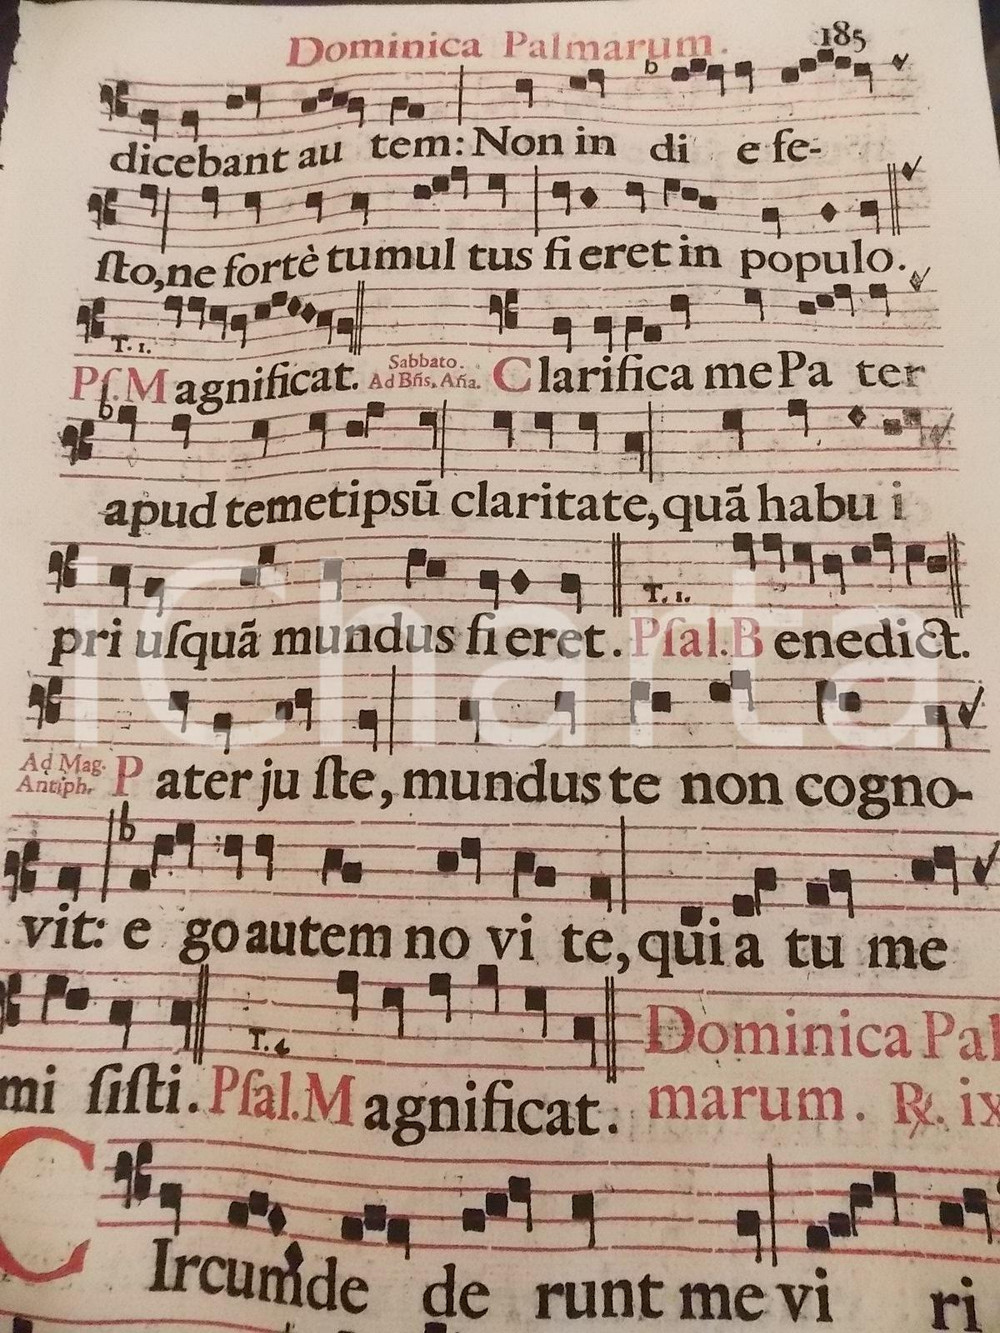 Dominica Palmarum. 185
dicebant au tem: Non in di e fe-
ſto, ne fortè tumul tus fi eret in populo.
T. 1.
Pſ. M agnificat. Sabbato. Ad Bñs. Aña. C larifica me Pa ter
apud temetipsũ claritate, quã habu i
T. 1.
pri uſquã mundus fi eret. Pſal. B enedict.
Ad Mag. Antiph. P ater ju ſte, mundus te non cogno-
vit: e go autem no vi te, qui a tu me
T. 4
mi ſiſti. Pſal. M agnificat. Dominica Pal
marum. ℟. ix
C Ircumde de runt me vi ri
iCharta